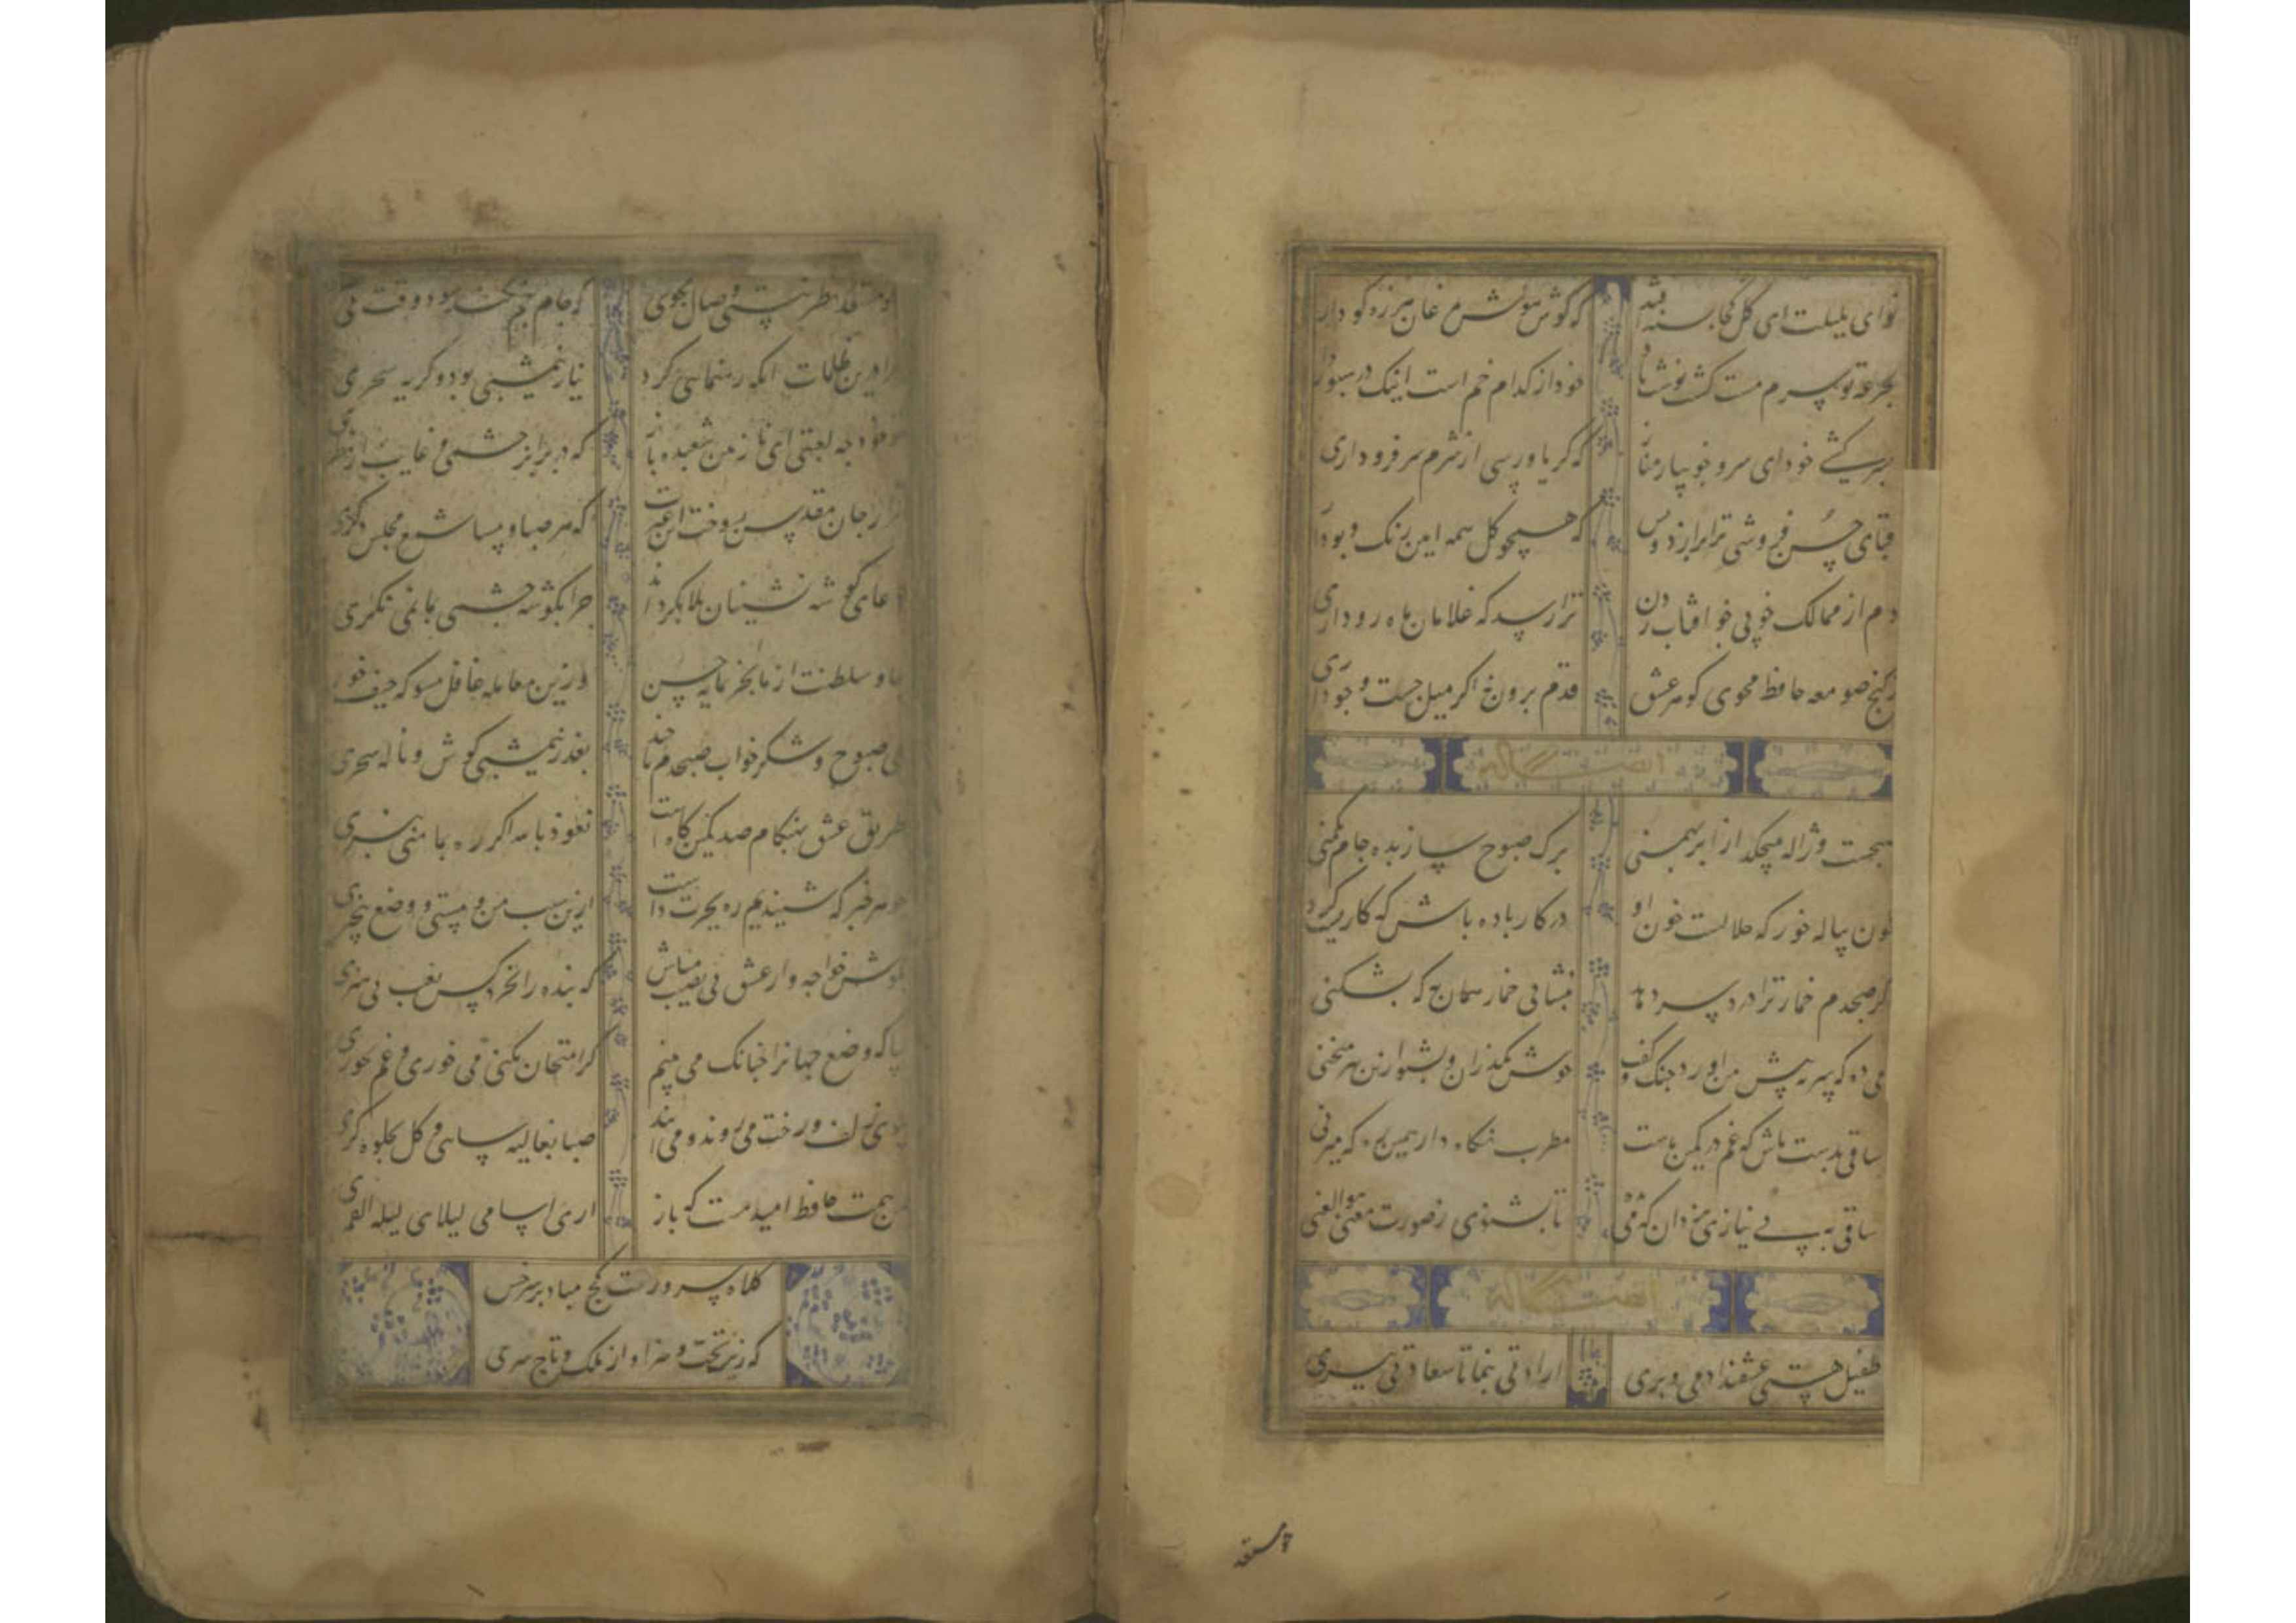 نوای بلبلت ای گل کجا پسند افتد که گوش هوش بمرغان هرزه گو داری
بجرعه تو سرم مست گشت نوشت باد خود از کدام خم است اینک در سبو داری
بسرکشی خود ای سرو جویبار مناز که گر باو رسی از شرم سر فرو داری
قبای حسن فروشی ترا برازد و بس که همچو گل همه ایین رنک و بو داری
دم از ممالک خوبی چو افتاب زدن ترا رسد که غلامان ماه رو داری
ز کنج صومعه حافظ مجوی گوهر عشق قدم برون نه اگر میل جست و جو داری
صبحست و ژاله میچکد از ابر بهمنی برک صبوح ساز بده جام یکمنی
خون پیاله خور که حلالست خون او در کار باده باش که کاریست کردنی
گر صبحدم خمار ترا درد سر دهد پیشانی خمار همان به که بشکنی
می ده که سر بگوش من اورد چنک و گفت خوش بگذران و بشنو ازین پیر منحنی
ساقی بدست باش که غم در کمین ماست مطرب نگاه دار همین ره که میزنی
ساقی به بی نیازی یزدان که می بده تا بشنوی ز صوت مغنی هو الغنی
طفیل هستی عشقند ادمی و پری ارادتی بنما تا سعادتی ببری
چو مستعد
چو مستعد نظر نیستی وصال مجوی که جام جم نکند سود وقت بی
مرا درین ظلمات انکه رهنمایی کرد نیاز نیمشبی بود و گریه سحری
تو خود چه لعبتی ای نازنین شعبده باز که در برابر چشمی و غایب از نظری
هزار جان مقدس بسوخت زین غیرت که هر صبا و مسا شمع مجلس دگری
دعای گوشه نشینان بلا بگرداند چرا بگوشه چشمی بما نمی نگری
بیا و سلطنت از ما بخر بمایه حسن وزین معامله غافل مشو که حیف خوری
می صبوح و شکر خواب صبحدم تا چند بعذر نیمشبی کوش و ناله سحری
طریق عشق بهنگام صد یکین گاه است نعوذ بالله اگر ره بما منی نبری
چو هر خبر که شنیدیم ره بحیرت داشت ازین سبب من و مستی و وضع بیخبری
بکوش خواجه و از عشق بی نصیب مباش که بنده را نخرد کس بعیب بی هنری
بیا که وضع جهانرا چنانک می بینم گر امتحان بکنی می خوری و غم نخوری
ببوی زلف و رخت می روند و می ایند صبا بغالیه سایی و گل بجلوه گری
بیمن همت حافظ امید هست که باز اری اسامر لیلای لیله القمری
کلاه سروریت کج مباد بر سر حسن
که زیب تخت و سزاوار ملک و تاج سری